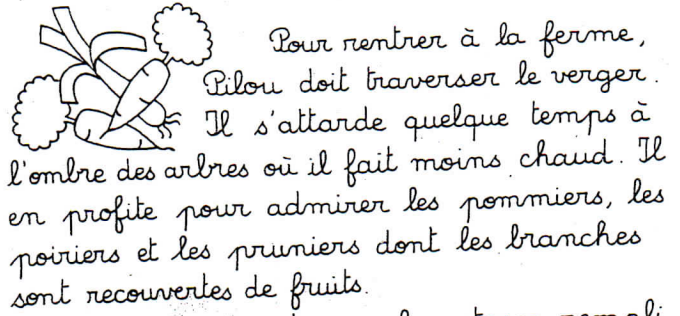 Pour rentrer à la ferme,
Pilou doit traverser le verger.
Il s'attarde quelque temps à
l'ombre des arbres où il fait moins chaud. Il
en profite pour admirer les pommiers, les
poiriers et les pruniers dont les branches
sont recouvertes de fruits.